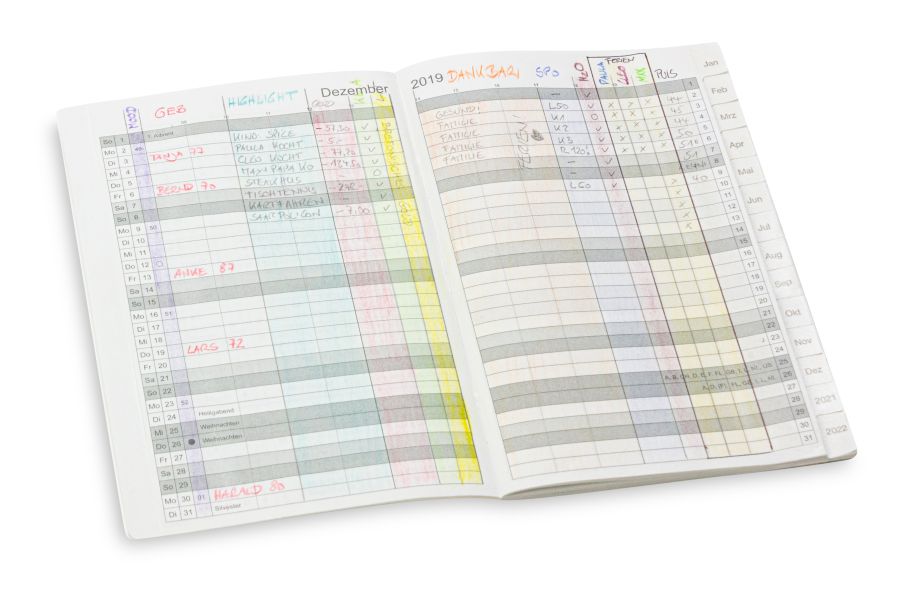 MOOD GEB HIGHLIGHT GELD Dezember
So 1 1. Advent
Mo 2 49 KIND SPICE - 37,30 ✓
Di 3 TANJA 77 PAULA KOCHT - 5,- ✓
Mi 4 CLEO KOCHT ✓
Do 5 MAXI PAPA KO O
Fr 6 BERND 70 STEAKHUS ✓
Sa 7 TISCHTENNIS
So 8 KARTFAHREN ✓
Mo 9 50 - 7,90
Di 10
Mi 11
Do 12
Fr 13 ANKE 87
Sa 14
So 15
Mo 16 51
Di 17
Mi 18
Do 19 LARS 72
Fr 20
Sa 21
So 22
Mo 23 52
Di 24 Heiligabend
Mi 25 Weihnachten
Do 26 Weihnachten
Fr 27
Sa 28
So 29
Mo 30 01 HARALD 80
Di 31 Silvester
2019 DANKBAR SPO H2O FERIEN PULS
PAULA CLEO MAX
1
GESUND! L50 ✓ x x x 44 2
FAMILIE K1 O x x x 45 3
FAMILIE K2 ✓ x x x 44 4
FAMILIE K3 ✓ x x x 50 5
FAMILIE R 120 ✓ x x x 6
51 7
8
L60 ✓ x 40 9
x 10
x 11
x 12
13
14
15
16
17
18
19
20
21
22
23
24
A, B, CH, D, E, F, FL, GB, I, L, NL, US 25
A, D, (F), FL, GB, I, L, NL 26
27
28
29
30
31
Jan
Feb
Mrz
Apr
Mai
Jun
Jul
Aug
Sep
Okt
Nov
Dez
2021
2022